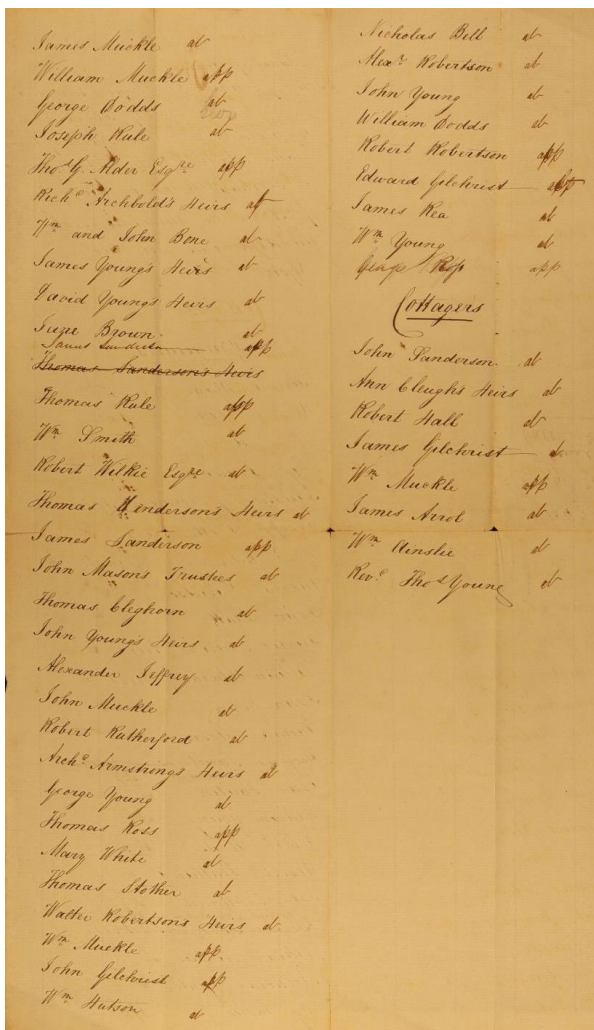 James Muckle ab
William Muckle app
George Dodds ab
Joseph Rule ab
Thos. G. Alder Esqre app
Richd Archbold's Heirs
Wm and John Bone ab
James Young's Heirs ab
David Young's Heirs ab
Brown ab
James Sanderson app
Thomas Sanderson's Heirs
Thomas Rule app
Wm Smith ab
Robert Wilkie Esqre ab
Thomas Henderson's Heirs ab
James Sanderson app
John Mason's Trustees ab
Thomas Cleghorn ab
John Young's Heirs ab
Alexander Jeffrey ab
John Muckle ab
Robert Rutherford ab
Archd Armstrings Heirs ab
George Young ab
Thomas Ross app
Mary White ab
Thomas Stother ab
Walter Robertson's Heirs ab
Wm Muckle app
John Gilchrist app
Wm Hutson ab
Nicholas Bell ab
Alexr Robertson ab
John Young ab
William Dodds ab
Robert Robertson app
Edward Gilchrist app
James Rea ab
Wm Young ab
George Ross app
Cottagers
John Sanderson ab
Ann Cleugh's Heirs ab
Robert Hall ab
James Gilchrist ab
Wm Muckle app
James Arrol ab
Wm Ainslie ab
Revd Thos Young ab